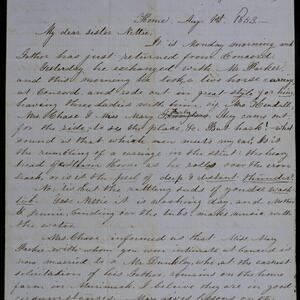 Home, Aug. 1st, 1853.
My dear sister Nettie.
It is Monday morning and
Father has just returned from Concord.
Yesterday he exchanged with Mr. Parker,
and this morning he took a two horse carry-
at Concord and rode out in great style for him,
having three ladies with him, Mrs Kendall
Mrs Chase & Mrs Mary They came out
for the ride, to see the place, &c. But hark! what
sound is that which now meets my ear. It is
the rumbling of a carriage in the street, the heavy
as he rolls over the iron
track, or is it the peal of deep & distant thunder.
No, tis but the rattling suds of yonder wash
tub. Yes Nettie it is washing day, and Mother
& Jennie, bending over the tubs, make music with
the water.
Mrs Chase informed us that Miss May
Parker with whom you were intimate at Concord is
now married to a Mr. Dunkley, who at the earnest
solicitation of his Father, remains on the home
farm in I believe they are in good